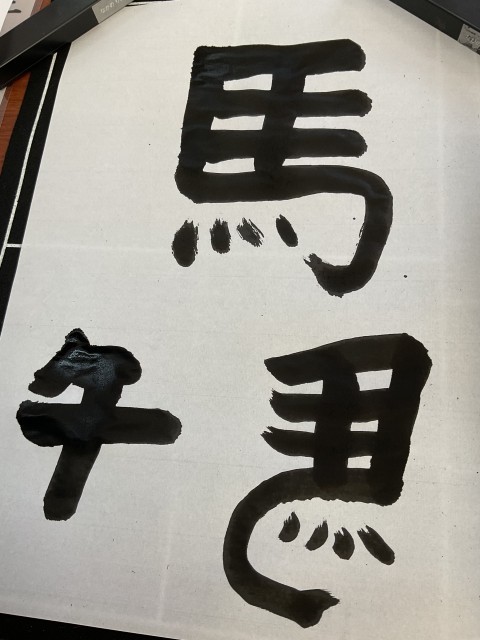 馬
馬
午